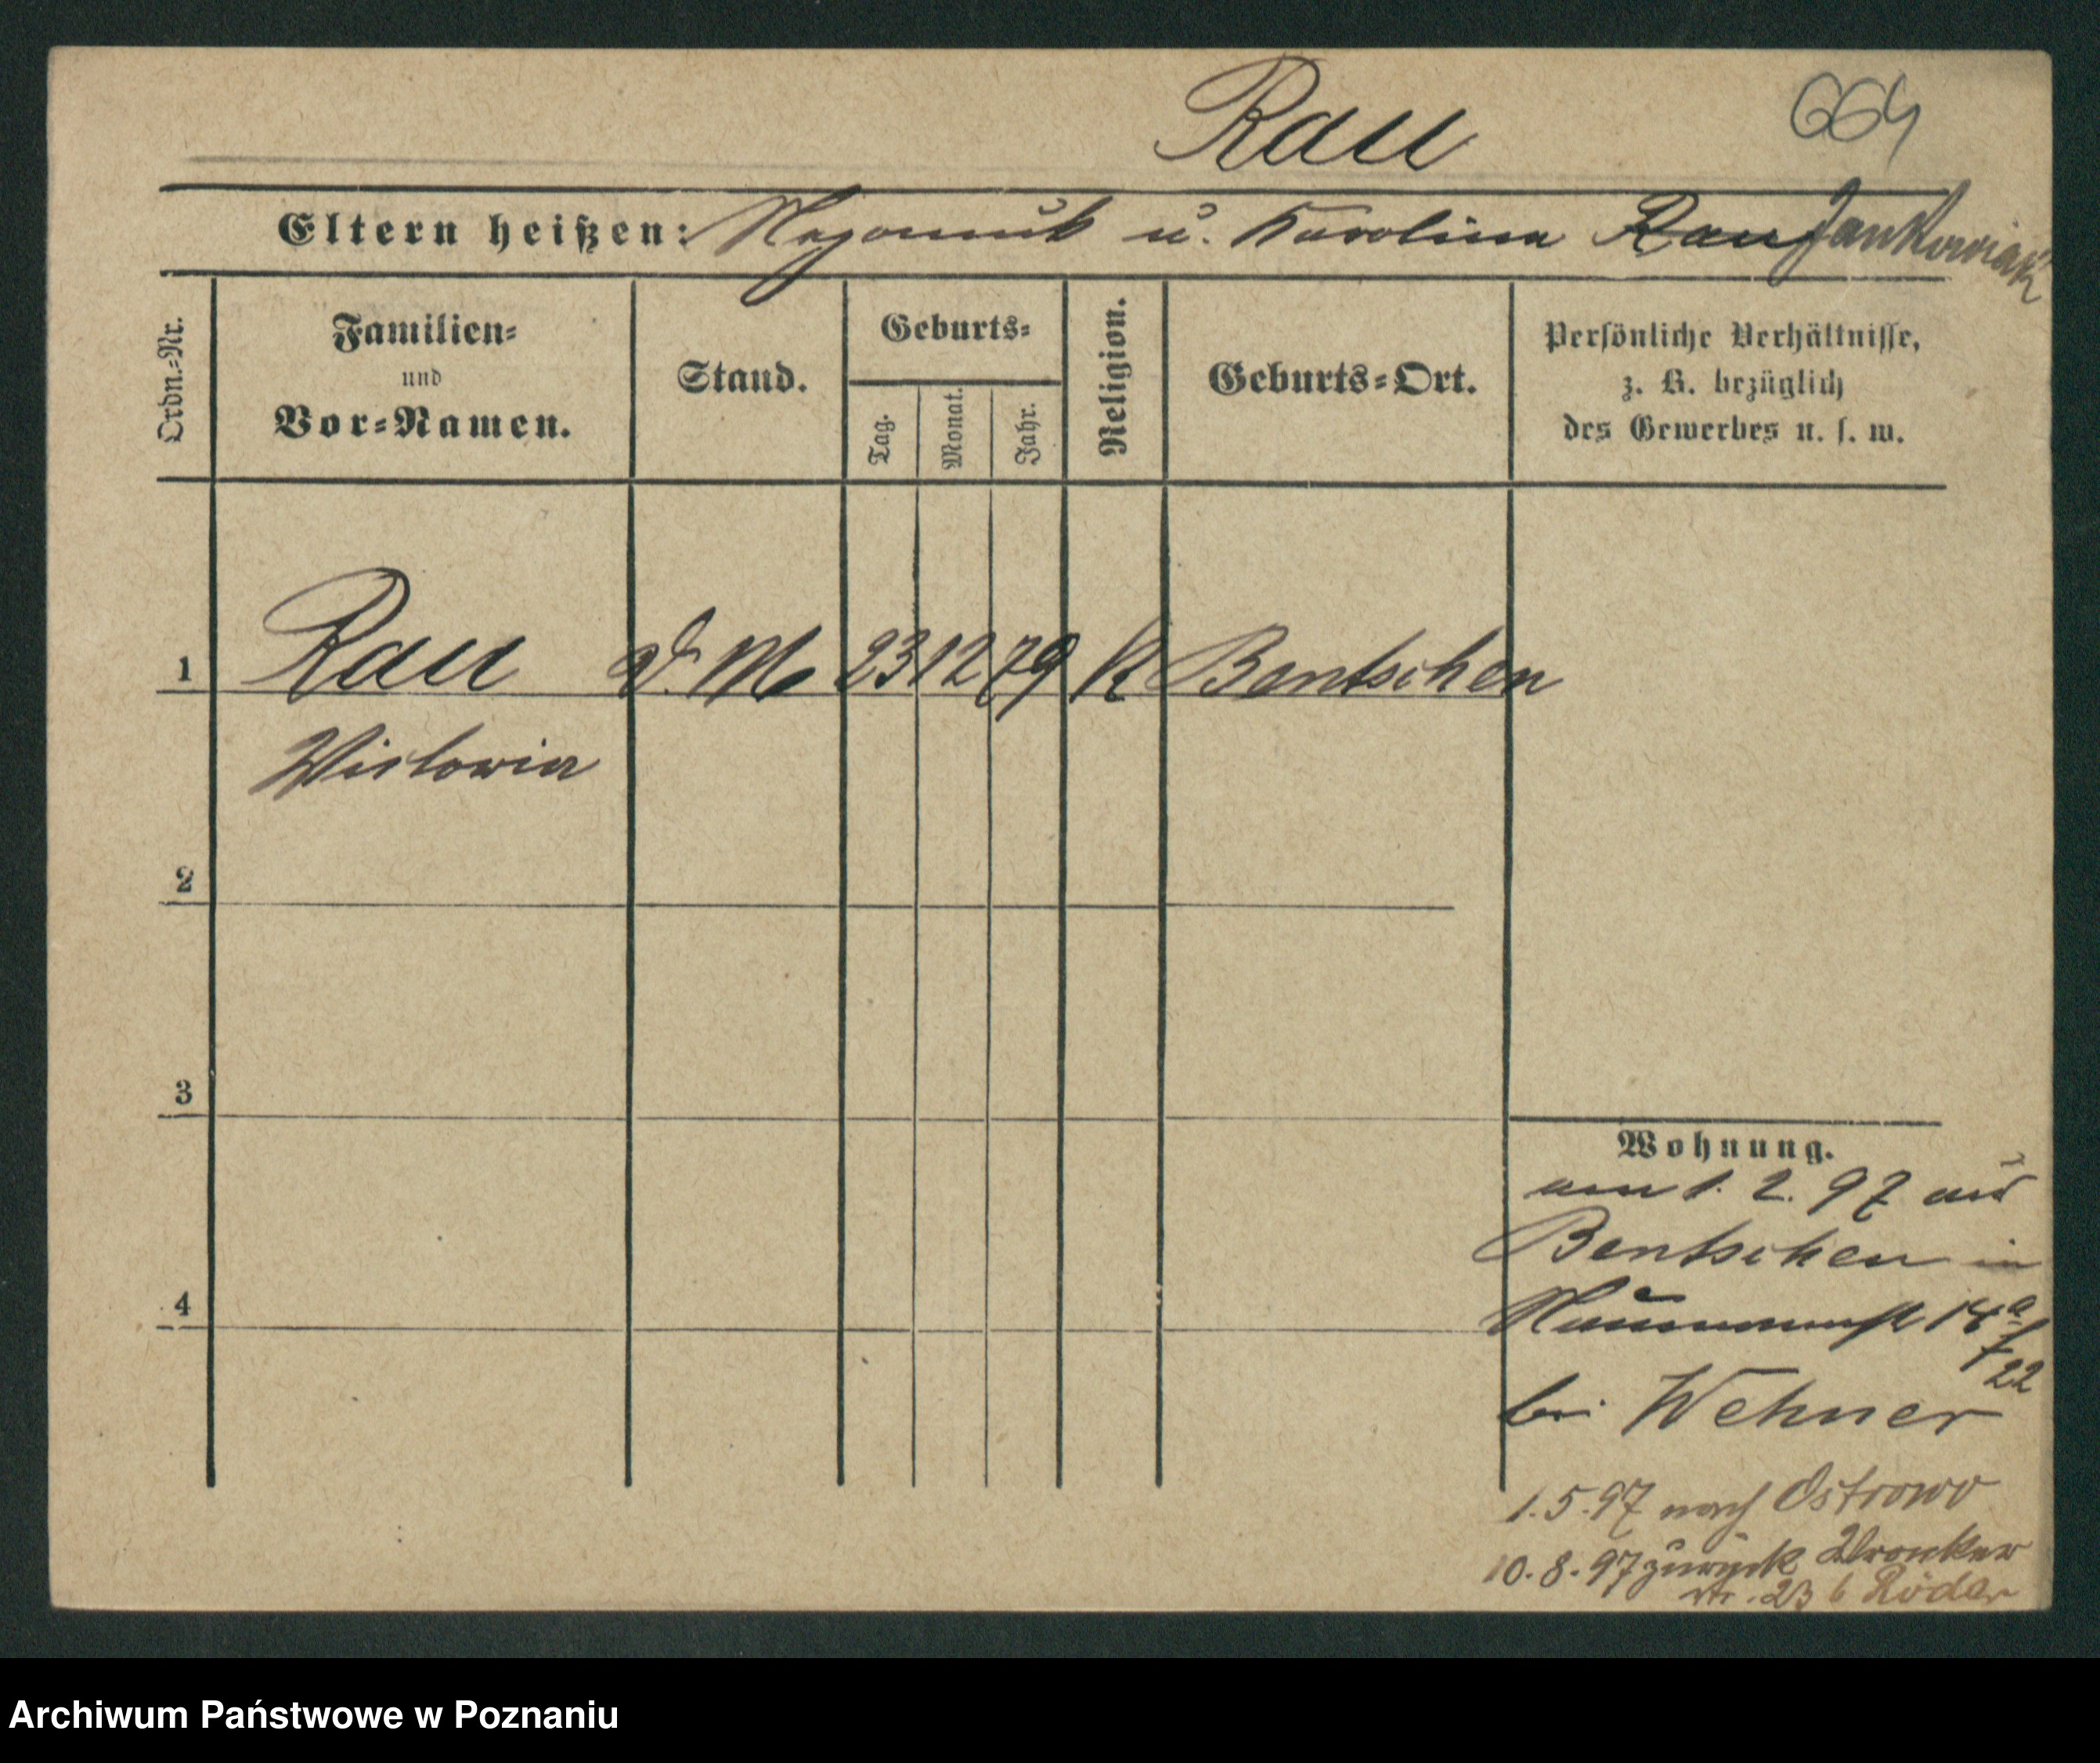 Rau
664
Eltern heißen: Nepomuk u. Karolina Rau Jankowiak
Ordn.-Nr.
Familien-
und
Vor-Namen.
Stand.
Geburts-
Tag.
Monat.
Jahr.
Religion.
Geburts-Ort.
Persönliche Verhältnisse,
z. B. bezüglich
des Gewerbes u. s. w.
1 Rau D. M 23 12 79 K Bentschen
Victoria
2
3
4
Wohnung.
am 1. 2. 97 aus
Bentschen in
14a
22
bei Wehner
1.5.97 nach Ostrowo
10.8.97 zurück Wronker
str. 23 b Röder
Archiwum Państwowe w Poznaniu